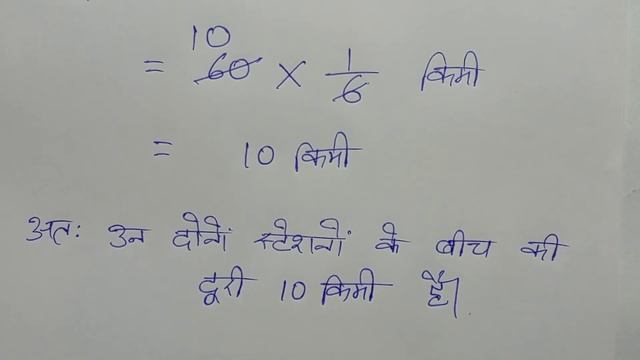 10
= 60 × 1/6 किमी
= 10 किमी
अतः उन दोनों स्टेशनों के बीच की
दूरी 10 किमी है।